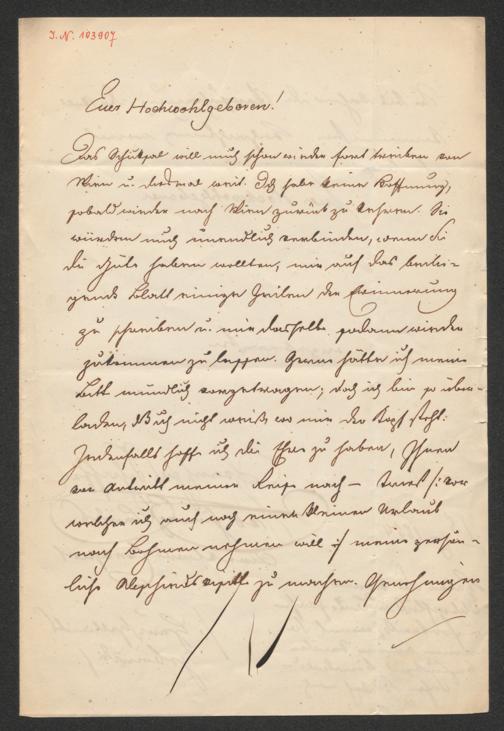 I. N. 103907
Euer Hochwohlgeboren!
Das Schicksal will mich schon wieder fort treiben von
Wien u. diesmal weit. Ich habe keine Hoffnung,
sobald wieder nach Wien zurück zu kehren. Sie
würden mich unendlich verbinden, wenn Sie
die Güte haben wollten, mir auf das beilie-
gende Blatt einige Zeilen der Erinnerung
zu schreiben u. mir dasselbe sodann wieder
zukommen zu lassen. Gerne hätte ich meine
Bitte mündlich vorgetragen; doch ich bin so über-
laden, daß ich nicht weiß, wo mir der Kopf steht.
Jedenfalls hoffe ich die Ehre zu haben, Ihnen
vor Antritt meiner Reise nach – /: vor
welcher ich auch noch einen kleinen Urlaub
nach Böhmen nehmen will :/ meine persön-
liche Abschiedsvisite zu machen. Genehmigen